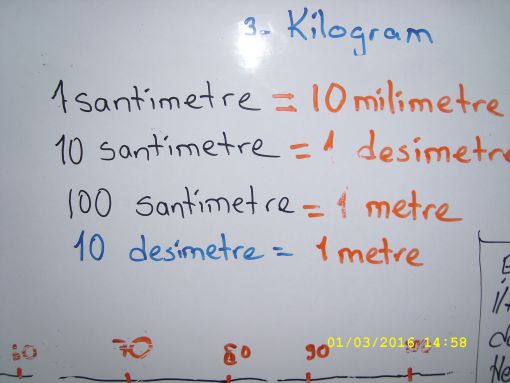 3- Kilogram
1 santimetre = 10 milimetre
10 santimetre = 1 desimetre
100 santimetre = 1 metre
10 desimetre = 1 metre
60 70 80 90 100
01/03/2016 14:58